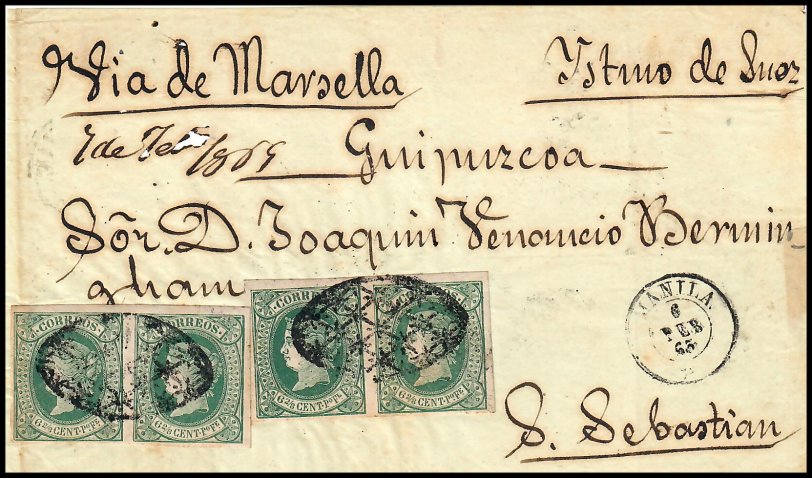 Via de Marsella
Ystmo de Suez
7 de Feb° 1865
Guipuzcoa
Sōr. D. Joaquin Venancio Bermin
gham
CORREOS CORREOS CORREOS CORREOS
6 2/8 CENT. Pº Fe. 6 2/8 CENT. Pº Fe. 6 2/8 CENT. Pº Fe. 6 2/8 CENT. Pº Fe.
MANILA
6
FEB
65
S. Sebastian